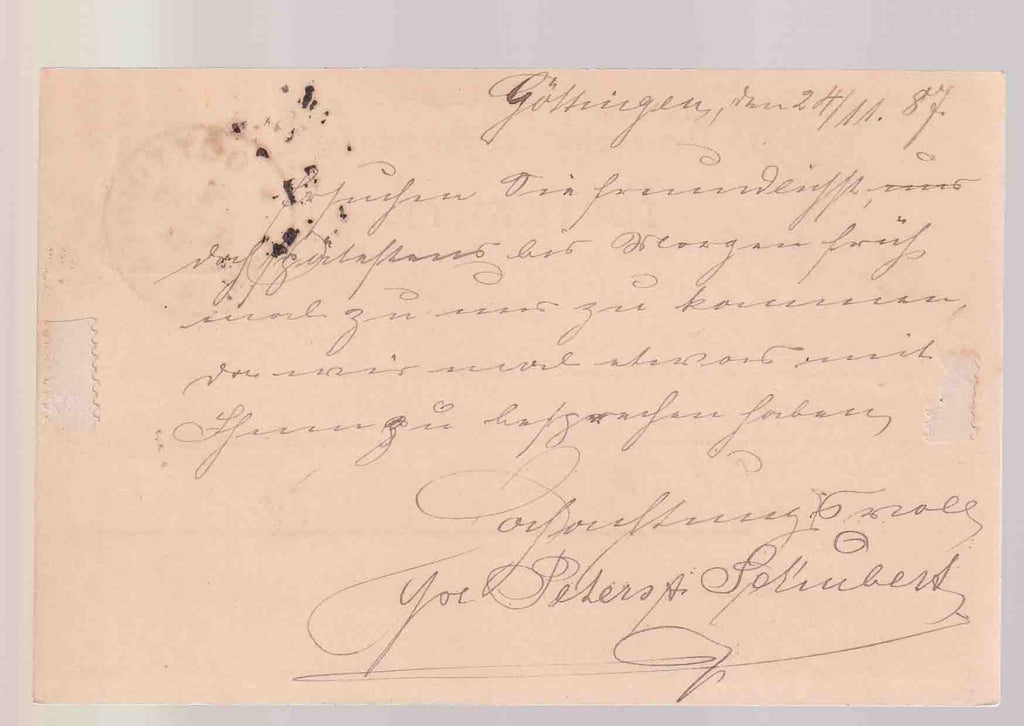 Göttingen, den 24/11. 87.
Ersuchen Sie freundlichst, uns
doch spätestens bis Morgen früh
mal zu uns zu kommen,
da wir mal etwas mit
Ihnen zu besprechen haben,
Hochachtungsvoll
Peters & Schubert